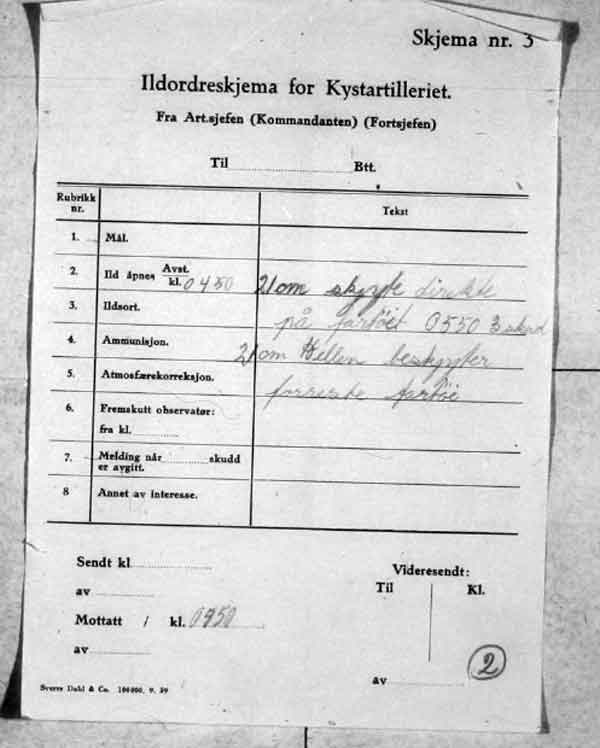 Skjema nr. 3
Ildordreskjema for Kystartilleriet.
Fra Art.sjefen (Kommandanten) (Fortsjefen)
Til Btt.
Rubrikk nr. Tekst
1. Mål.
2. Ild åpnes Avst. kl. 0450 21 cm skyte direkte
3. Ildsort. på fartøiet 0550 3 skudd
4. Ammunisjon. 21 cm beskyter
5. Atmosfærekorreksjon. forreste fartøi
6. Fremskutt observatør:
fra kl.
7. Melding når skudd
er avgitt.
8 Annet av interesse.
Sendt kl
av
Mottatt / kl. 0450
av
Videresendt:
Til Kl.
av
2
Sverre Dahl & Co. 100000. 9. 39